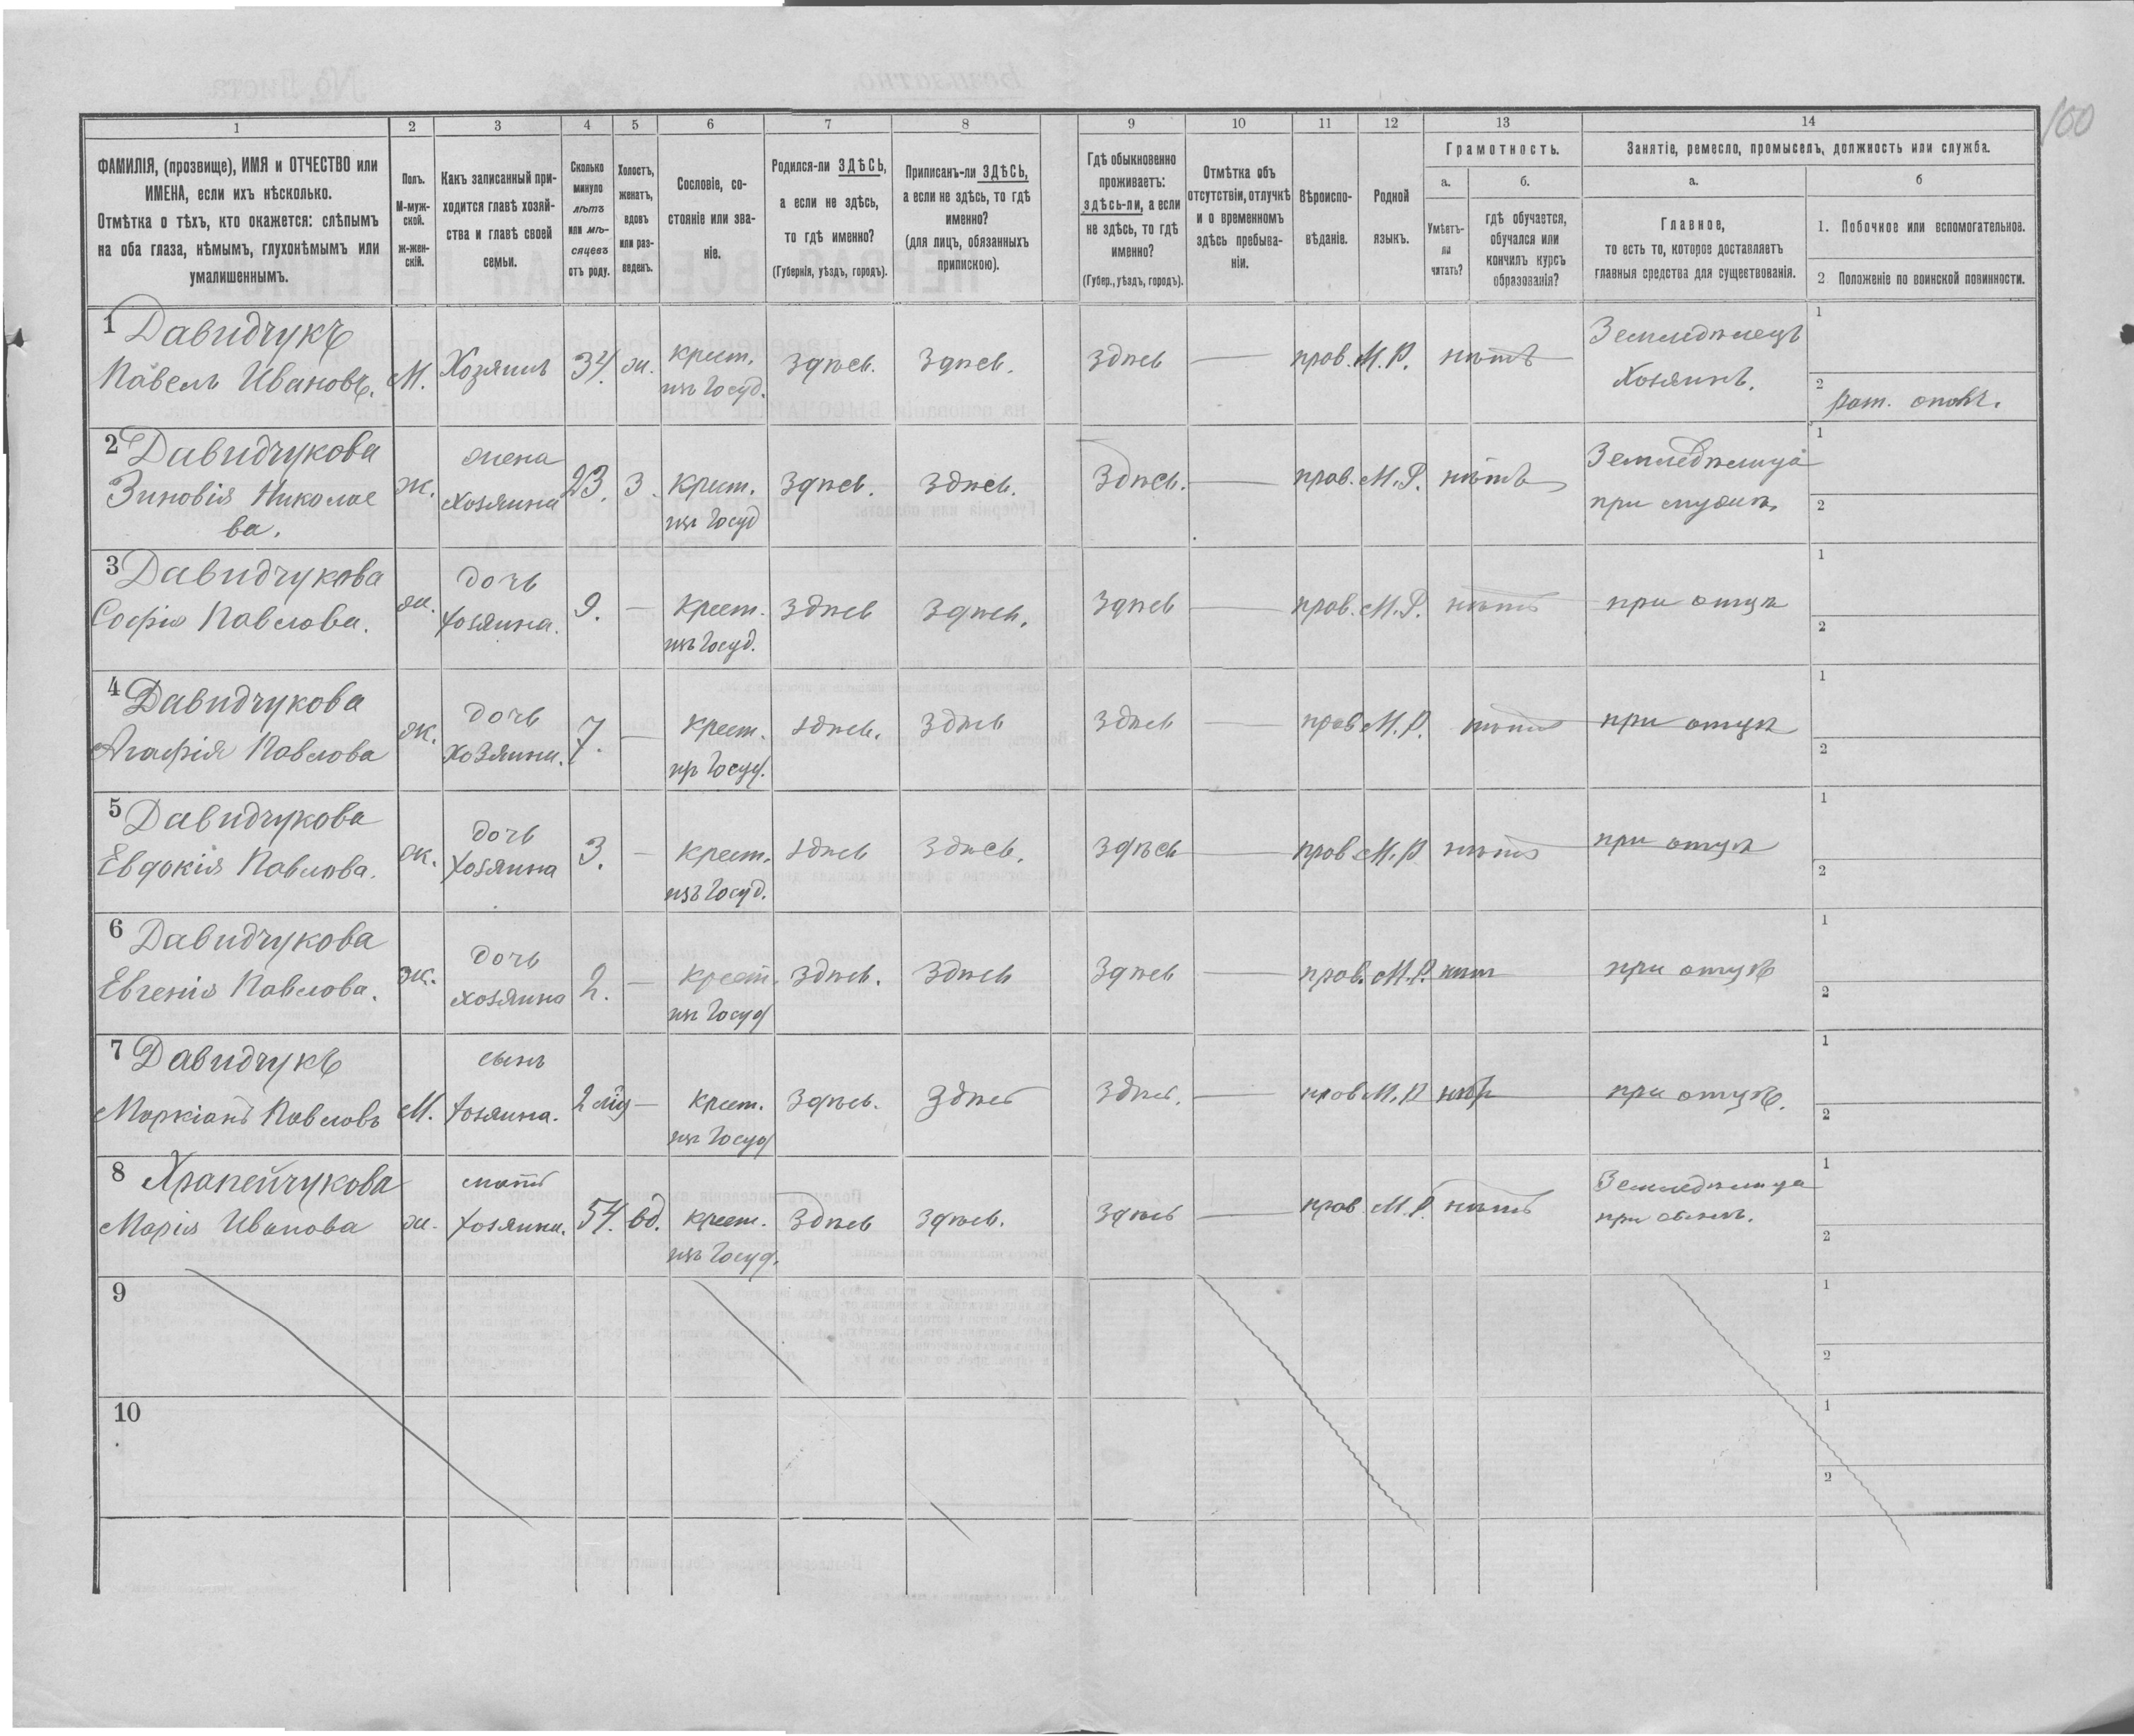 100
1 2 3 4 5 6 7 8 9 10 11 12 13 14
ФАМИЛІЯ, (прозвище), ИМЯ и ОТЧЕСТВО или
ИМЕНА, если ихъ нѣсколько.
Отмѣтка о тѣхъ, кто окажется: слѣпымъ
на оба глаза, нѣмымъ, глухонѣмымъ или
умалишеннымъ.
Полъ.
М-муж-
ской.
ж-жен-
скій.
Какъ записанный при-
ходится главѣ хозяй-
ства и главѣ своей
семьи.
Сколько
минуло
лѣтъ
или мѣ-
сяцевъ
отъ роду.
Холостъ,
женатъ,
вдовъ
или раз-
веденъ.
Сословіе, со-
стояніе или зва-
ніе.
Родился-ли ЗДѢСЬ,
а если не здѣсь,
то гдѣ именно?
(Губернія, уѣздъ, городъ).
Приписанъ-ли ЗДѢСЬ,
а если не здѣсь, то гдѣ
именно?
(для лицъ, обязанныхъ
припискою).
Гдѣ обыкновенно
проживаетъ:
здѣсь-ли, а если
не здѣсь, то гдѣ
именно?
(Губер., уѣздъ, городъ).
Отмѣтка объ
отсутствіи, отлучкѣ
и о временномъ
здѣсь пребыва-
ніи.
Вѣроиспо-
вѣданіе.
Родной
языкъ.
Грамотность.
а. б.
Умѣетъ-
ли
читать?
гдѣ обучается,
обучался или
кончилъ курсъ
образованія?
Занятіе, ремесло, промыселъ, должность или служба.
а. б
Главное,
то есть то, которое доставляетъ
главныя средства для существованія.
1. Побочное или вспомогательное.
2 Положеніе по воинской повинности.
1 Давидчукъ
Павелъ Ивановъ. М. Хозяинъ 34. ж. крест. здѣсь. здѣсь. здѣсь — прав. М.Р. нѣтъ Земледѣлецъ 1
изъ Госуд. Хозяинъ. 2 рат. опол.
2 Давидчукова жена Земледѣлица 1
Зиновія Николае ж. хозяина 23. з. крест. здѣсь. здѣсь. здѣсь. — прав. М.Р. нѣтъ
ва. изъ Госуд при мужѣ. 2
3 Давидчукова дочь 1
Софія Павлова. ж. хозяина. 9. — крест. здѣсь здѣсь. здѣсь — прав. М.Р. нѣтъ при отцѣ
изъ Госуд. 2
4 Давидчукова дочь 1
Агафія Павлова ж. хозяина. 7. — крест. здѣсь. здѣсь здѣсь — прав М.Р. нѣтъ при отцѣ
изъ Госуд. 2
5 Давидчукова дочь 1
Евдокія Павлова. ж. хозяина 3. — крест. здѣсь здѣсь. здѣсь — прав. М.Р нѣтъ при отцѣ
изъ Госуд. 2
6 Давидчукова дочь 1
Евгенія Павлова. ж. хозяина 2. — крест. здѣсь. здѣсь здѣсь — прав. М.Р. нѣт при отцѣ
изъ Госуд 2
7 Давидчукъ сынъ 1
Маркіанъ Павловъ М. хозяина. — крест. здѣсь. здѣсь здѣсь. — прав М.Р при отцѣ.
изъ Госуд 2
8 Храпейчукова мать Земледѣлица 1
Марія Иванова ж. хозяина. 54. вд. крест. здѣсь здѣсь. здѣсь — прав М.Р. нѣтъ при сынѣ.
изъ Госуд. 2
9 1
2
10 1
2